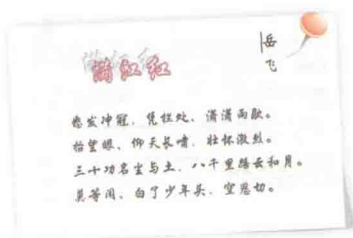 满江红
岳飞
怒发冲冠，凭栏处、潇潇雨歇。
抬望眼、仰天长啸，壮怀激烈。
三十功名尘与土，八千里路云和月。
莫等闲、白了少年头，空悲切。